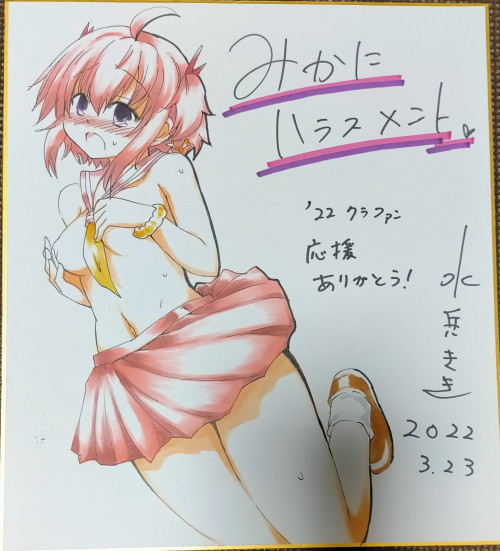 みかに
ハラスメント
'22 クラファン
応援
ありがとう!
水兵きき
2022
3.23